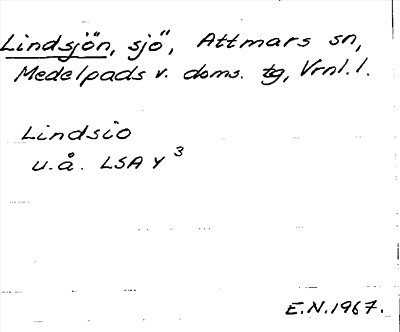 Lindsjön, sjö, Attmars sn,
Medelpads v. doms. tg, Vrnl. l.
Lindsio
u.å. LSA Y 3
E.N. 1967.